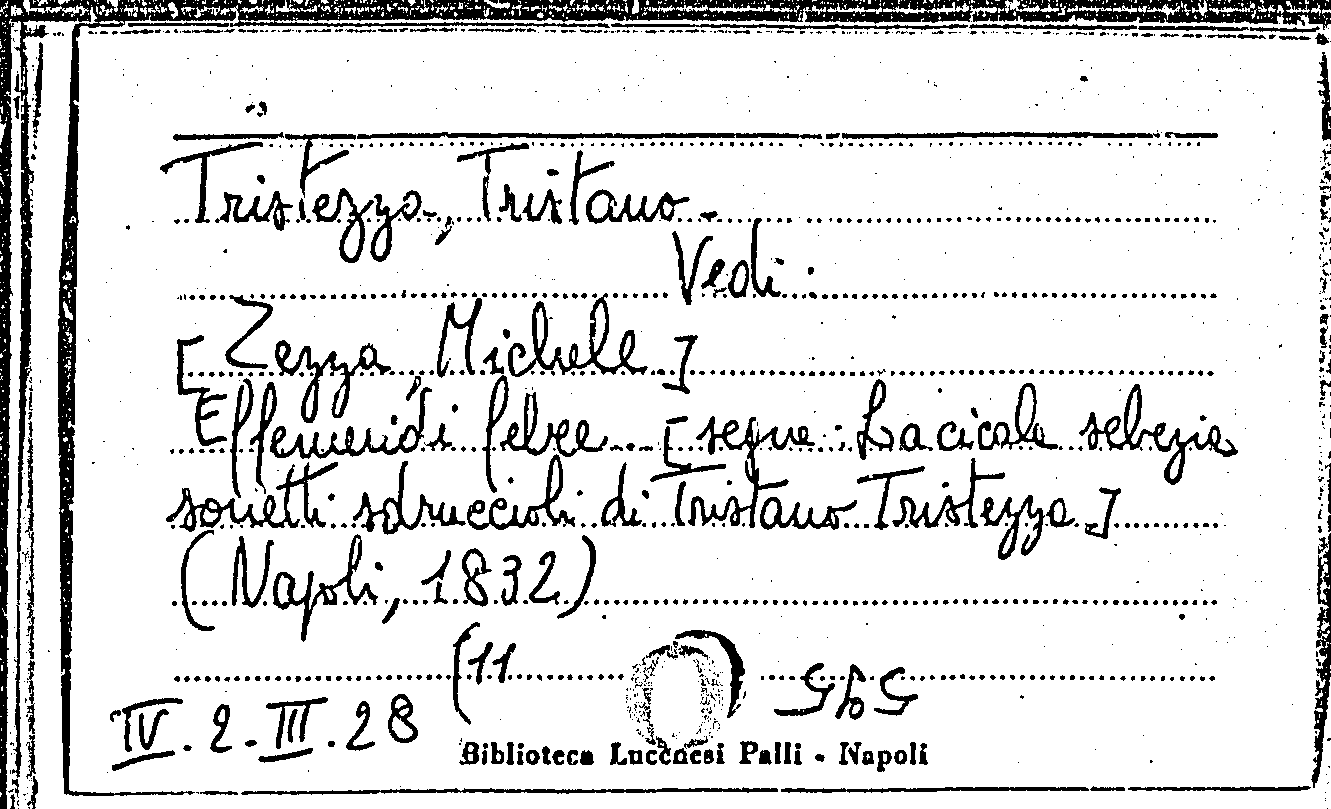 Tristezza, Tristano -
Vedi:
[Zezza, Michele]
Effemeridi febee .. [segue: La cicala sebezia
sonetti sdruccioli di Tristano Tristezza]
(Napoli, 1832)
(11
IV. 2. III. 28
Biblioteca Lucchesi Palli - Napoli